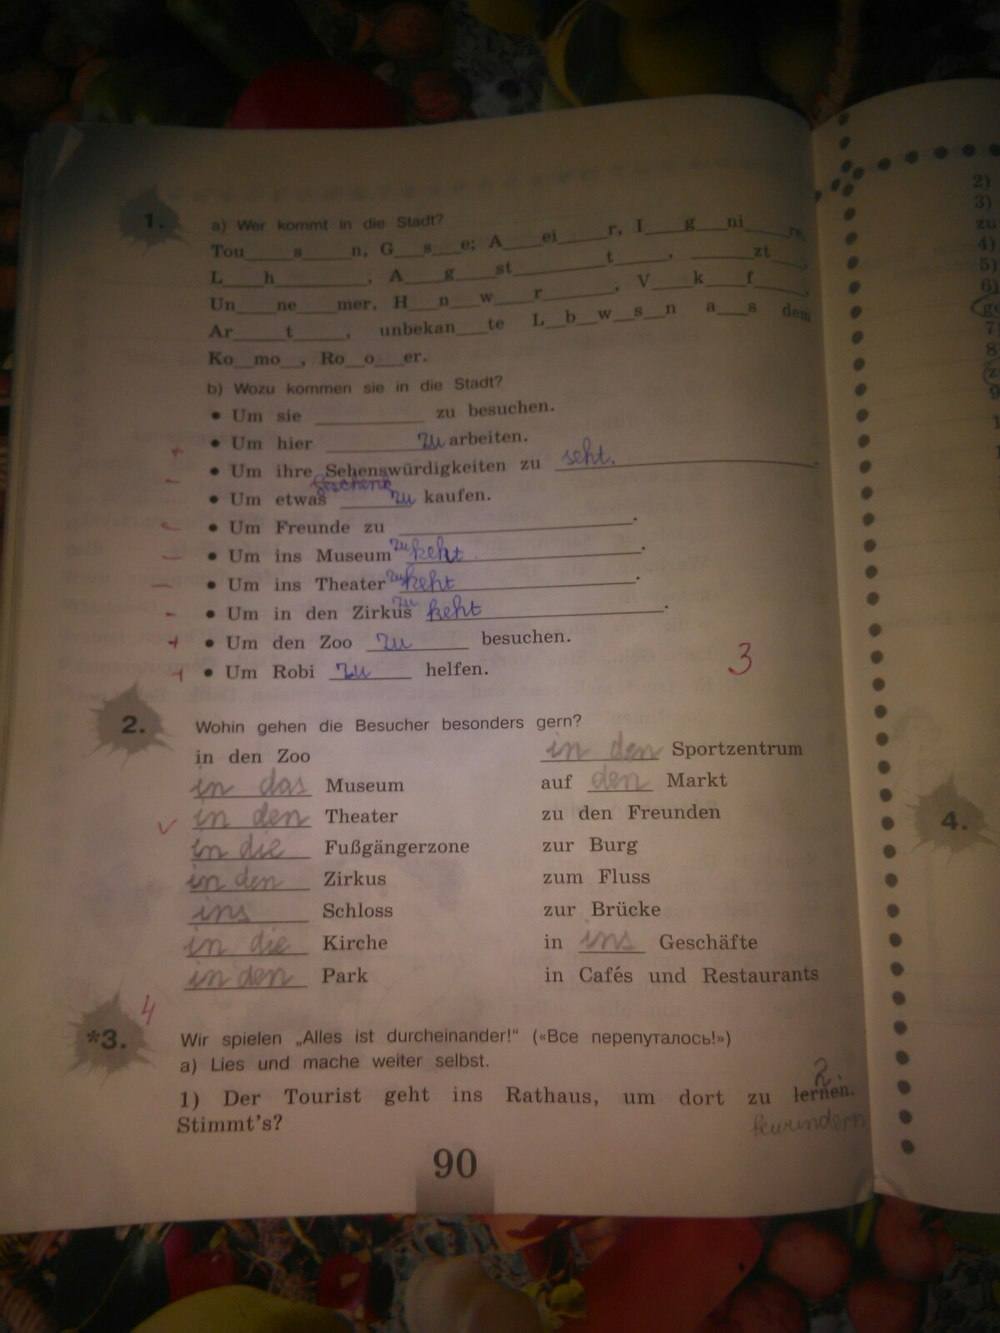 1. a) Wer kommt in die Stadt?
Tou___s___n, G__s__e; A___ei___r, I___g___ni___re,
L___h______, A___g___st______t___, ____zt___,
Un___ne___mer, H__n__w___r_____, V___k___f____,
Ar___t___, unbekan__te L_b_w_s_n a__s dem
Ko__mo__, Ro__o__er.
b) Wozu kommen sie in die Stadt?
• Um sie ________ zu besuchen.
• Um hier ________ zu arbeiten.
• Um ihre Sehenswürdigkeiten zu seht.
• Um etwas zu kaufen.
• Um Freunde zu ________.
• Um ins Museum zu keht.
• Um ins Theater zu keht.
• Um in den Zirkus zu keht.
• Um den Zoo zu besuchen.
• Um Robi zu helfen.
3
2. Wohin gehen die Besucher besonders gern?
in den Zoo
in das Museum
in den Theater
in die Fußgängerzone
in den Zirkus
ins Schloss
in die Kirche
in den Park
in den Sportzentrum
auf den Markt
zu den Freunden
zur Burg
zum Fluss
zur Brücke
in ins Geschäfte
in Cafés und Restaurants
4
*3. Wir spielen „Alles ist durcheinander!“ («Все перепуталось!»)
a) Lies und mache weiter selbst.
1) Der Tourist geht ins Rathaus, um dort zu lernen.
Stimmt's?
90
2)
3)
zu
4)
5)
6)
7
8
4.